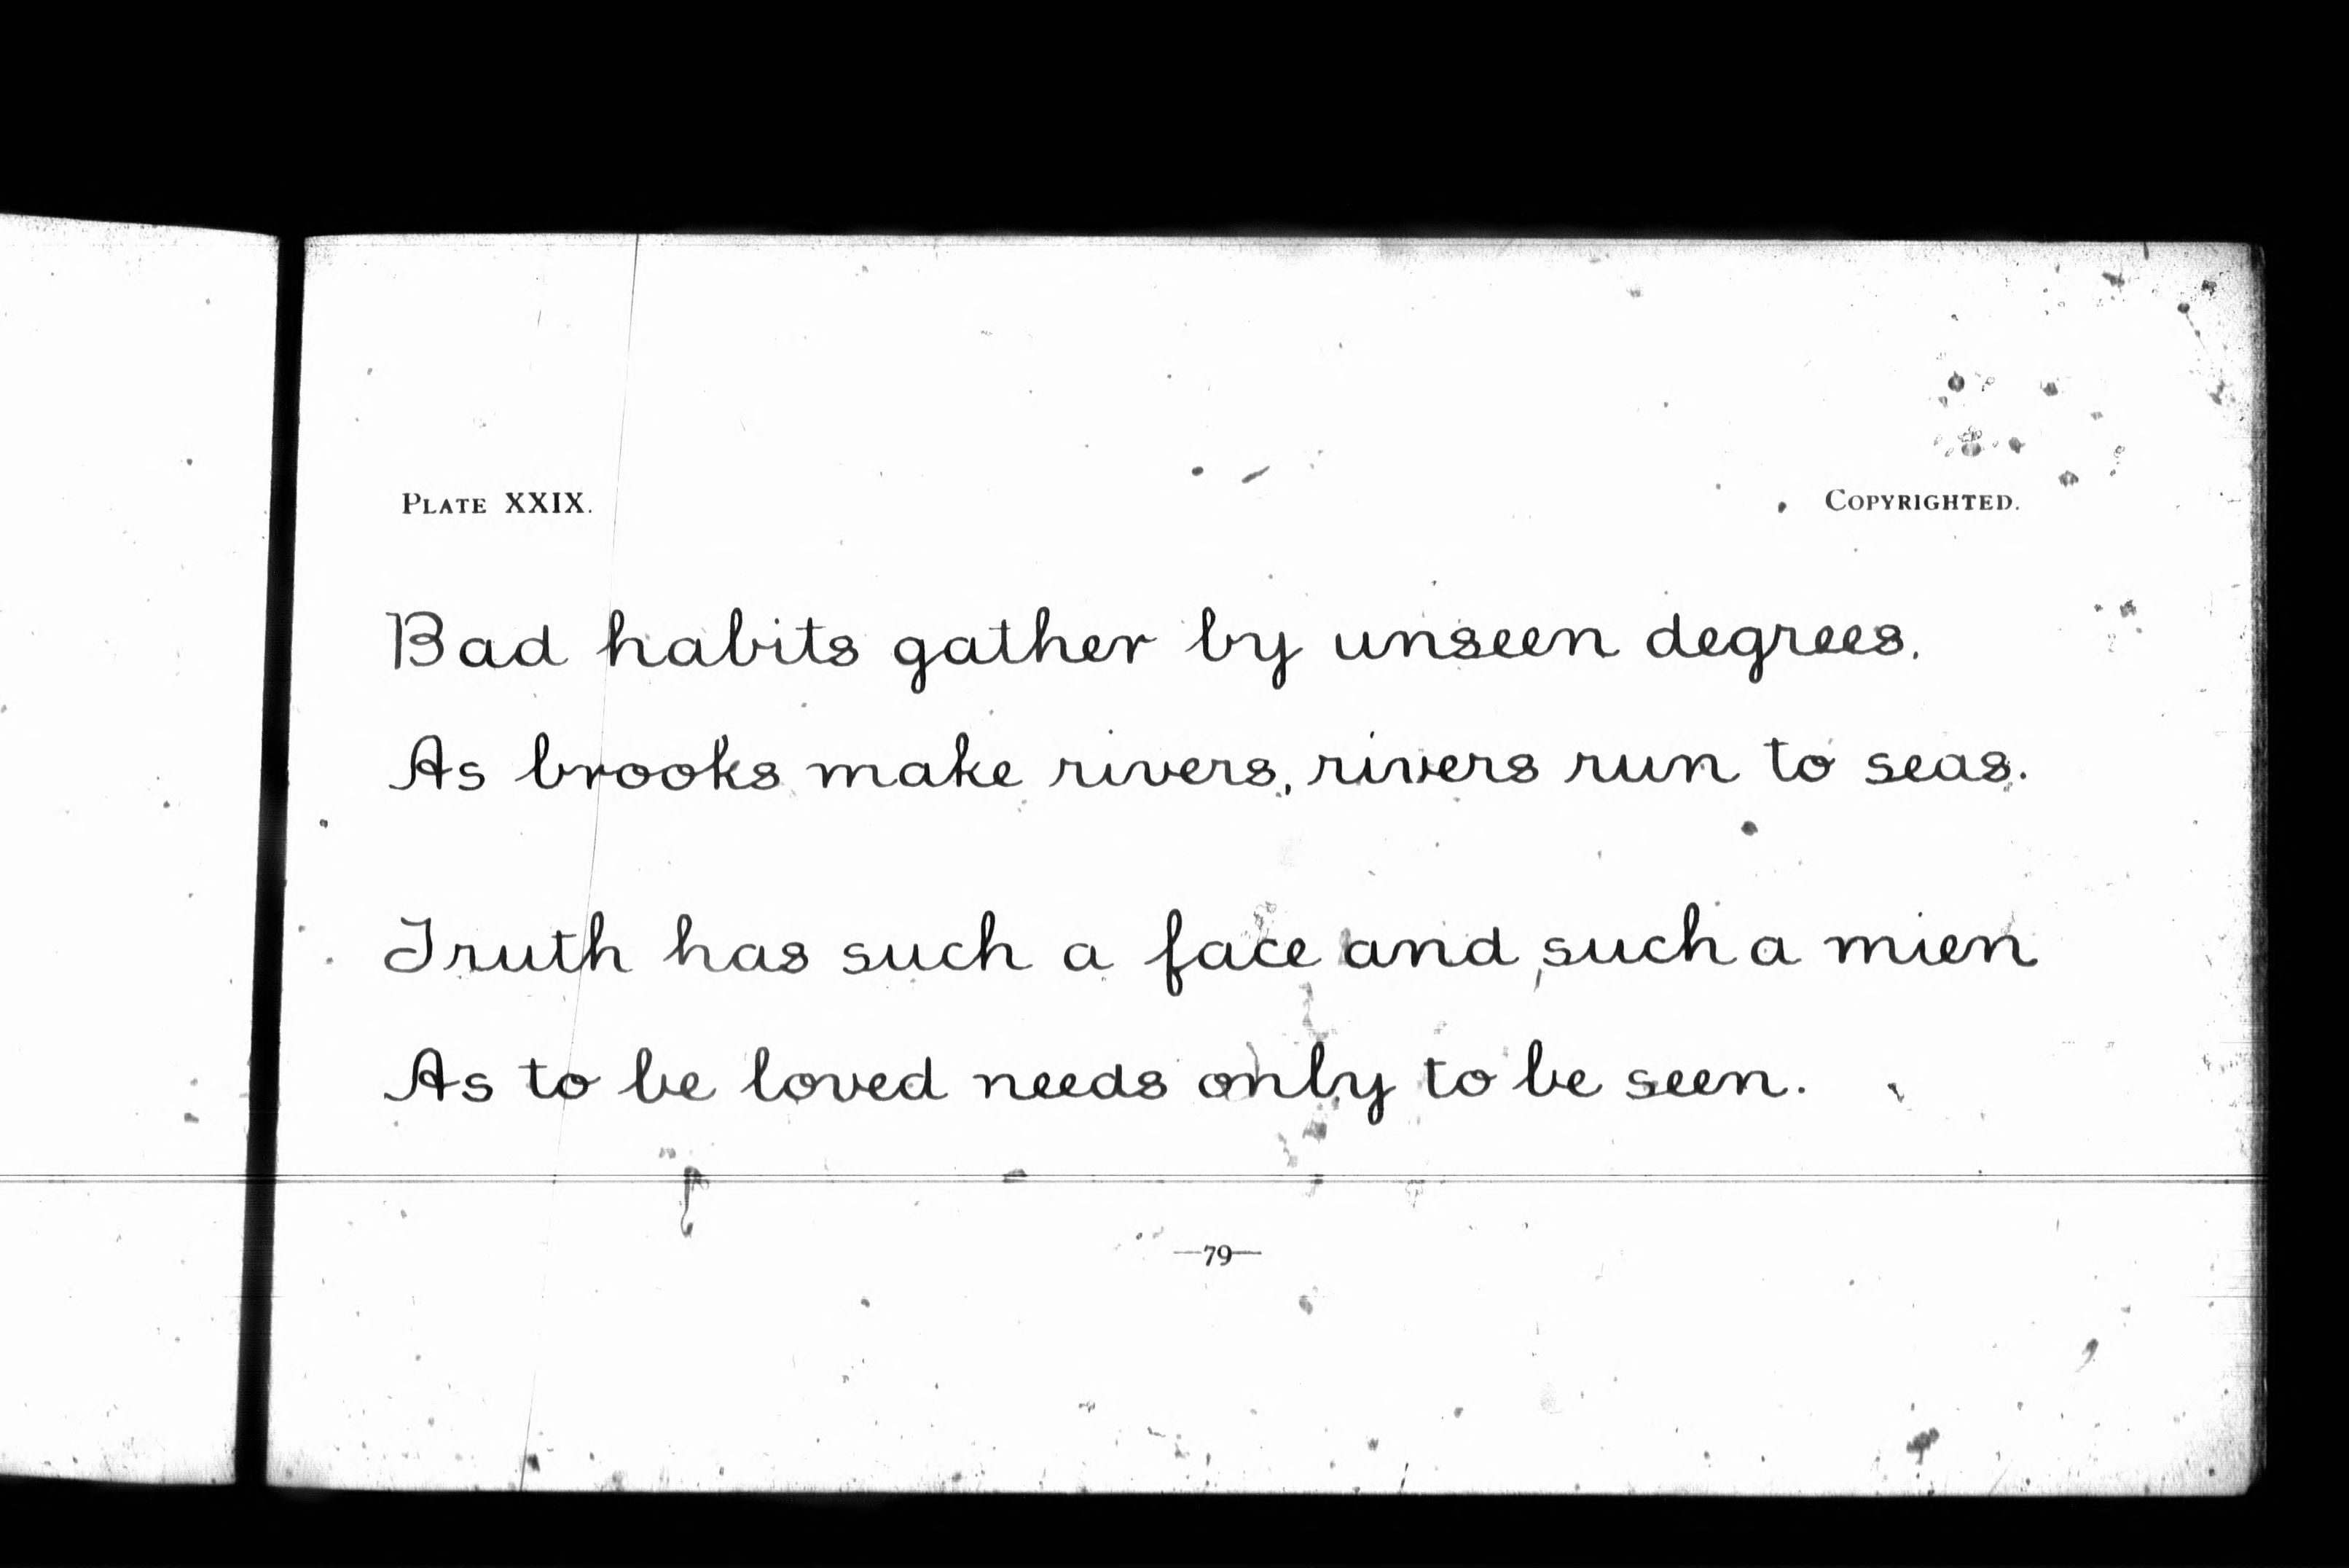 PLATE XXIX. COPYRIGHTED.
Bad habits gather by unseen degrees.
As brooks make rivers, rivers run to seas.
Truth has such a face and such a mien
As to be loved needs only to be seen.
—79—